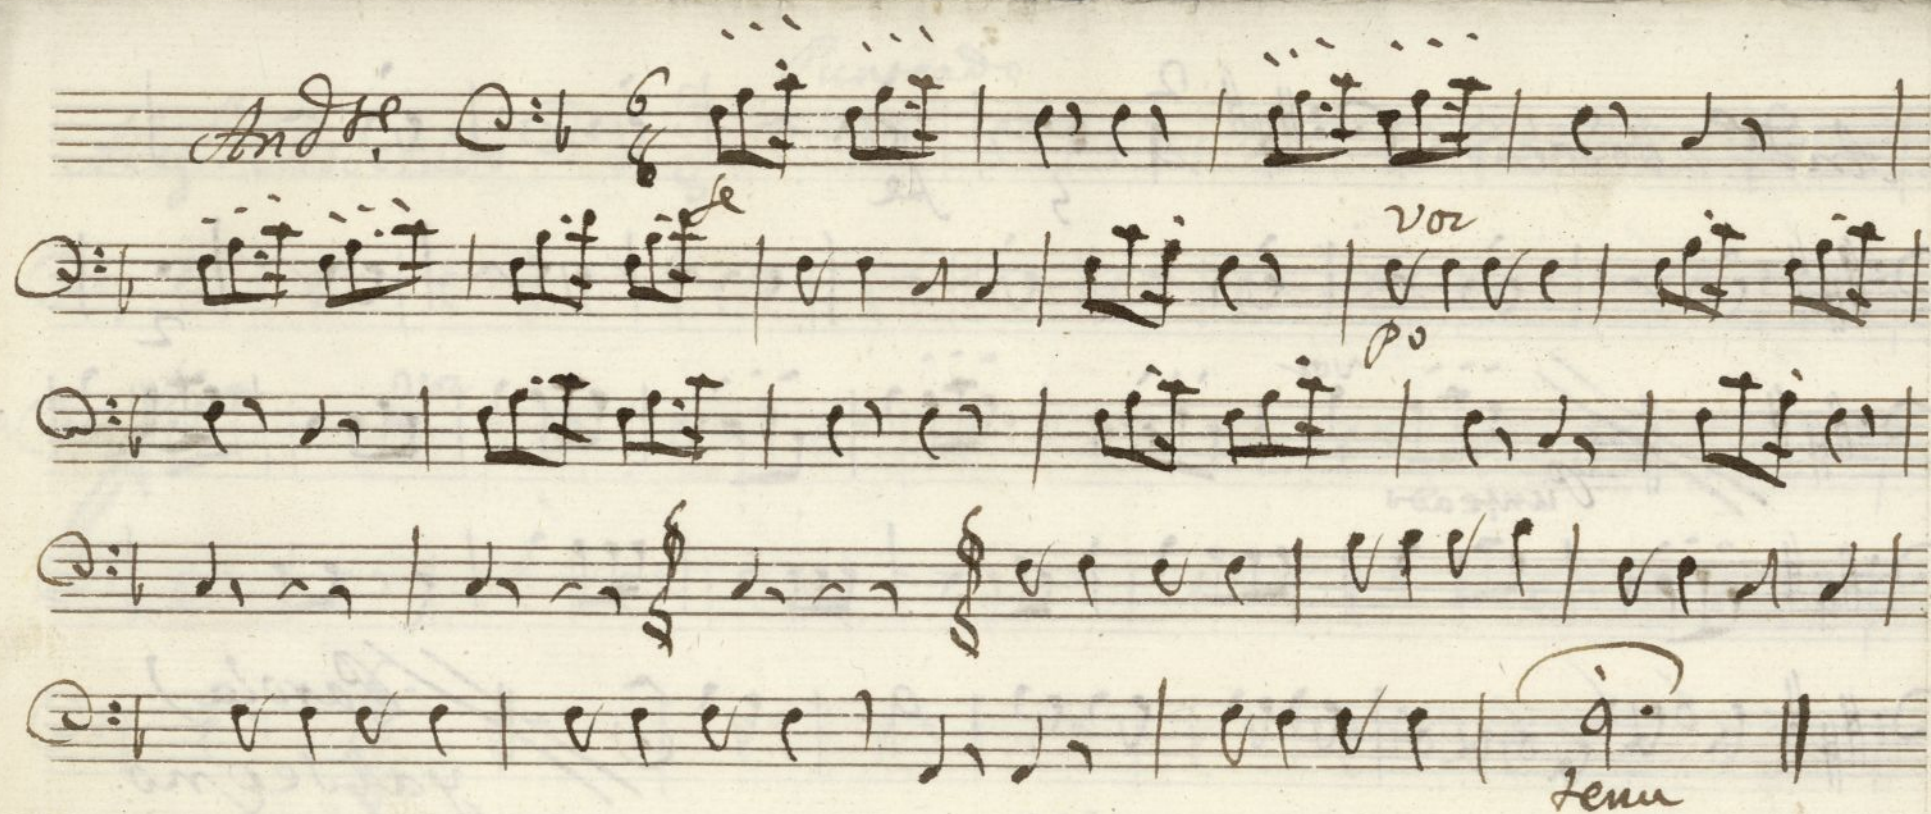 Andte 6/8
fe
vor
po
tenu